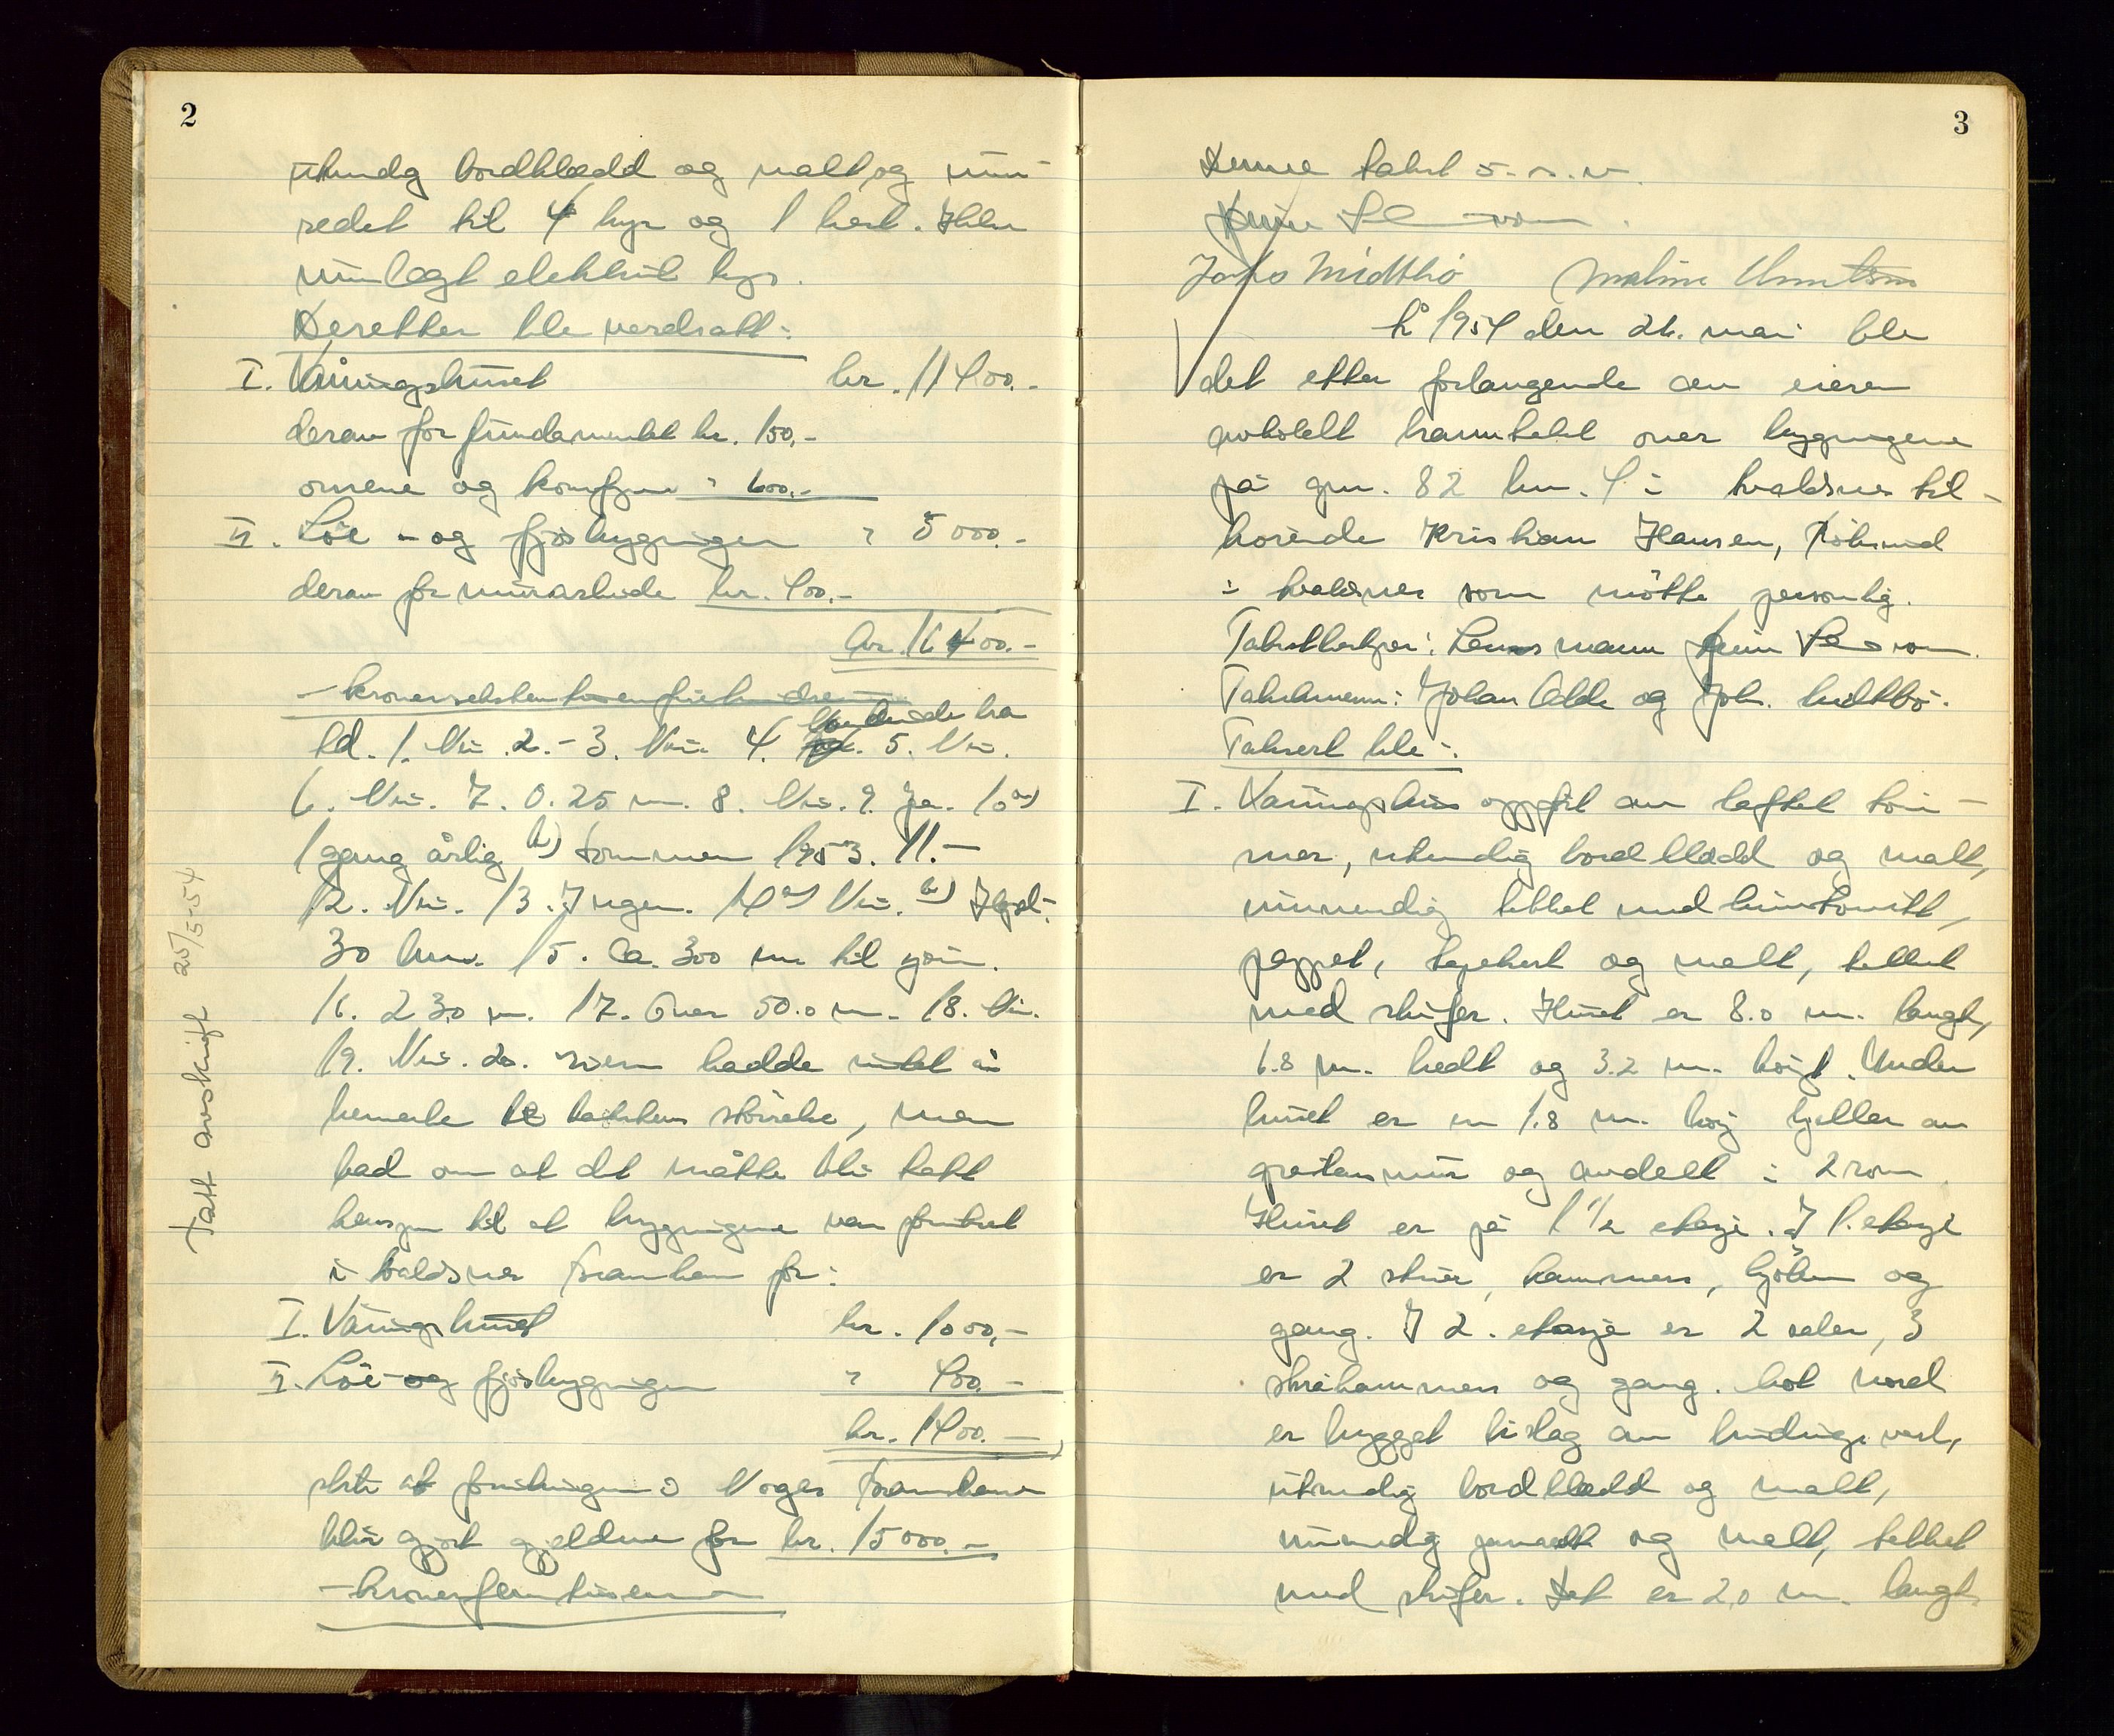 2
utvendig bordklædd og malt, og inn-
redet til 4 kyr og 1 hest. Huset
innlagt elektrisk lys.
Deretter ble verdsatt:
I. Våningshuset kr. 11400.-
derav for fundamentet kr. 150,-
ovnene og komfyren " 600,-
II. Löe- og fjösbygningen " 5000.-
derav for murarbeide kr. 400.-
kr. 16400.-
- kronersekstentusenfirehundre -
Ad. 1. Nei. 2. - 3. Nei. 4. 5. Nei.
6. Nei. 7. 0.25 m. 8. Nei. 9. Ja. 10a)
1 gang årlig b) Sommeren 1953. 11. -
12. Nei. 13. Ingen. 14a) Nei. b) Höyst
30 km. 15. Ca. 300 m til sjöen.
16. 230 m. 17. Over 50.0 m. 18. Nei.
19. Nei. 20. Eieren hadde intet å
bemerke til takstens störrelse, men
bad om at det måtte bli tatt
hensyn til at bygningene var forsikret
i Avaldsnes Brannkasse for:
I. Våningshuset kr. 1000,-
II. Löe- og fjösbygningen " 400.-
kr. 1400.-
slik at forsikringen i Norges Brannkasse
blir gjort gjeldene for kr. 15000.-
- kronerfemtentusen -
Tatt avskrift 25/5-54
3
Denne takst
Johs Midtbö
År 1954 den 26. mai ble
det etter forlangende av eieren
avholdt branntakst over bygningene
på gnr. 82 bnr. 4 i Avaldsnes til-
hörende Kristian Hansen,
i Avaldsnes som mötte personlig.
Takstbestyrer: Lensmann
Takstmenn: Johan Odde og Joh. Midtbö.
Taksert ble:
I. Våningshus oppfört av laftet töm-
mer, utvendig bordklædd og malt,
innvendig tettet med huntonitt,
pappet, tapetsert og malt, tekket
med skifer. Huset er 8.0 m. langt,
6.8 m. bredt og 3.2 m. höigt. Under
huset er en 1.8 m. höy kjeller av
gråsteinsmur og avdelt i 2 rom.
Huset er på 1 1/2 etasje. I 1. etasje
er 2 stuer, kammers, kjöken og
gang. I 2. etasje er 2 saler, 3
skråkammers og gang. Mot nord
er bygget bislag av bindingsverk,
utvendig bordklædd og malt,
innvendig panelt og malt, tekket
med skifer. Det er 2,0 m. langt,